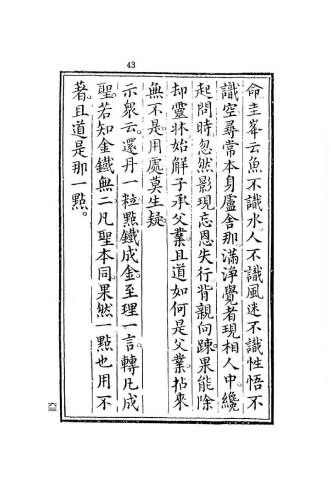 43
命圭峯云魚不識水人不識風迷不識性悟不
識空尋常本身盧舍那滿淨覺者現相人中纔
起問時忽然影現忘恩失行背親向踈果能除
却靈牀始解子承父業且道如何是父業拈來
無不是用處莫生疑
示衆云還丹一粒點鐵成金至理一言轉凡成
聖若知金鐵無二凡聖本同果然一點也用不
著且道是那一點。
六三